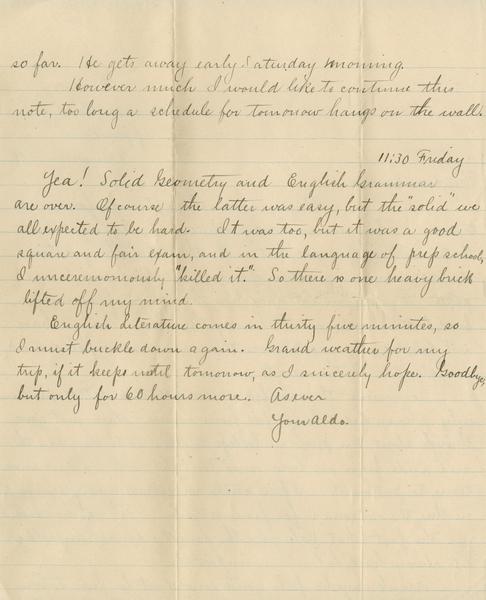 so far. He gets away early Saturday morning.
However much I would like to continue this
note, too long a schedule for tomorrow hangs on the wall.
11:30 Friday
Yea! Solid Geometry and English Grammar
are over. Of course the latter was easy, but the "solid" we
all expected to be hard. It was too, but it was a good
square and fair exam, and in the language of prep school,
I unceremoniously "killed it". So there is one heavy brick
lifted off my mind.
English Literature comes in thirty five minutes, so
I must buckle down again. Grand weather for my
trip, if it keeps until tomorrow, as I sincerely hope. Goodbye,
but only for 60 hours more. As ever
Your Aldo.